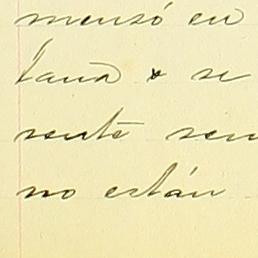 menzó en
tana & se
sente sen
no están